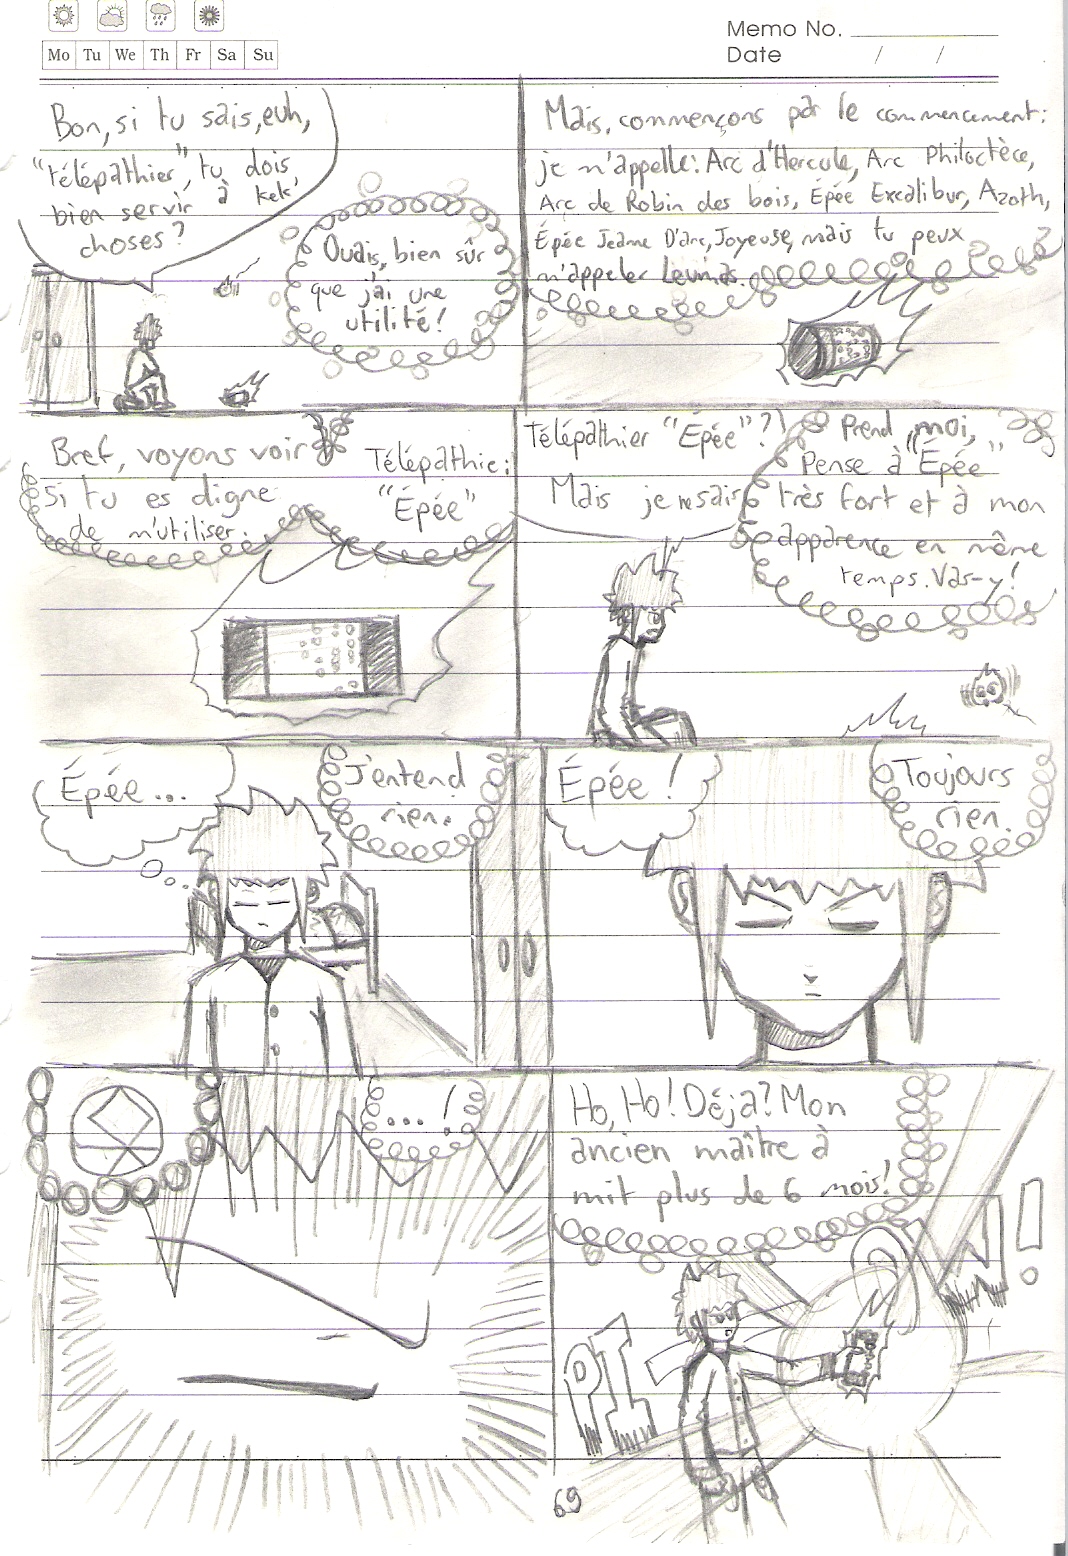 Memo No.
Date / /
Mo Tu We Th Fr Sa Su
Bon, si tu sais, euh,
"télépathier", tu dois
bien servir à kek'
choses?
Ouais, bien sûr
que j'ai une
utilité!
Mais, commençons par le commencement:
je m'appelle: Arc d'Hercule, Arc Philoctèce,
Arc de Robin des bois, Épée Excalibur, Azoth,
Épée Jeanne D'arc, Joyeuse, mais tu peux
m'appeler
Bref, voyons voir
si tu es digne
de m'utiliser.
Télépathie:
"Épée"
Télépathier "Épée"?
Mais je ne sais
Prend moi,
Pense à "Épée"
très fort et à mon
apparence en même
temps. Vas-y!
Épée...
J'entend
rien.
Épée!
Toujours
rien.
...!
Ho, Ho! Déja? Mon
ancien maître à
mit plus de 6 mois!
PI
69